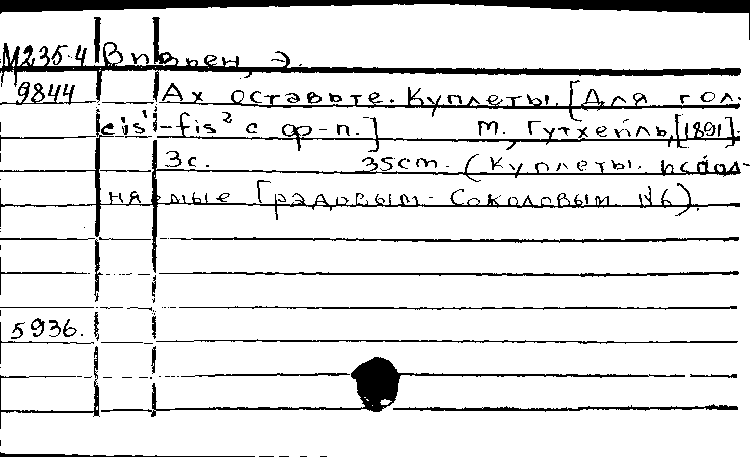 М235.4 Вивьен, Э.
9844 Ах оставьте. Куплеты. [Для гол.
cis¹-fis² с ф-п.] М., Гутхейль, [1891].
3с. 35см. (Куплеты. испол-
няемые Градовым-Соколовым №6).
5936.